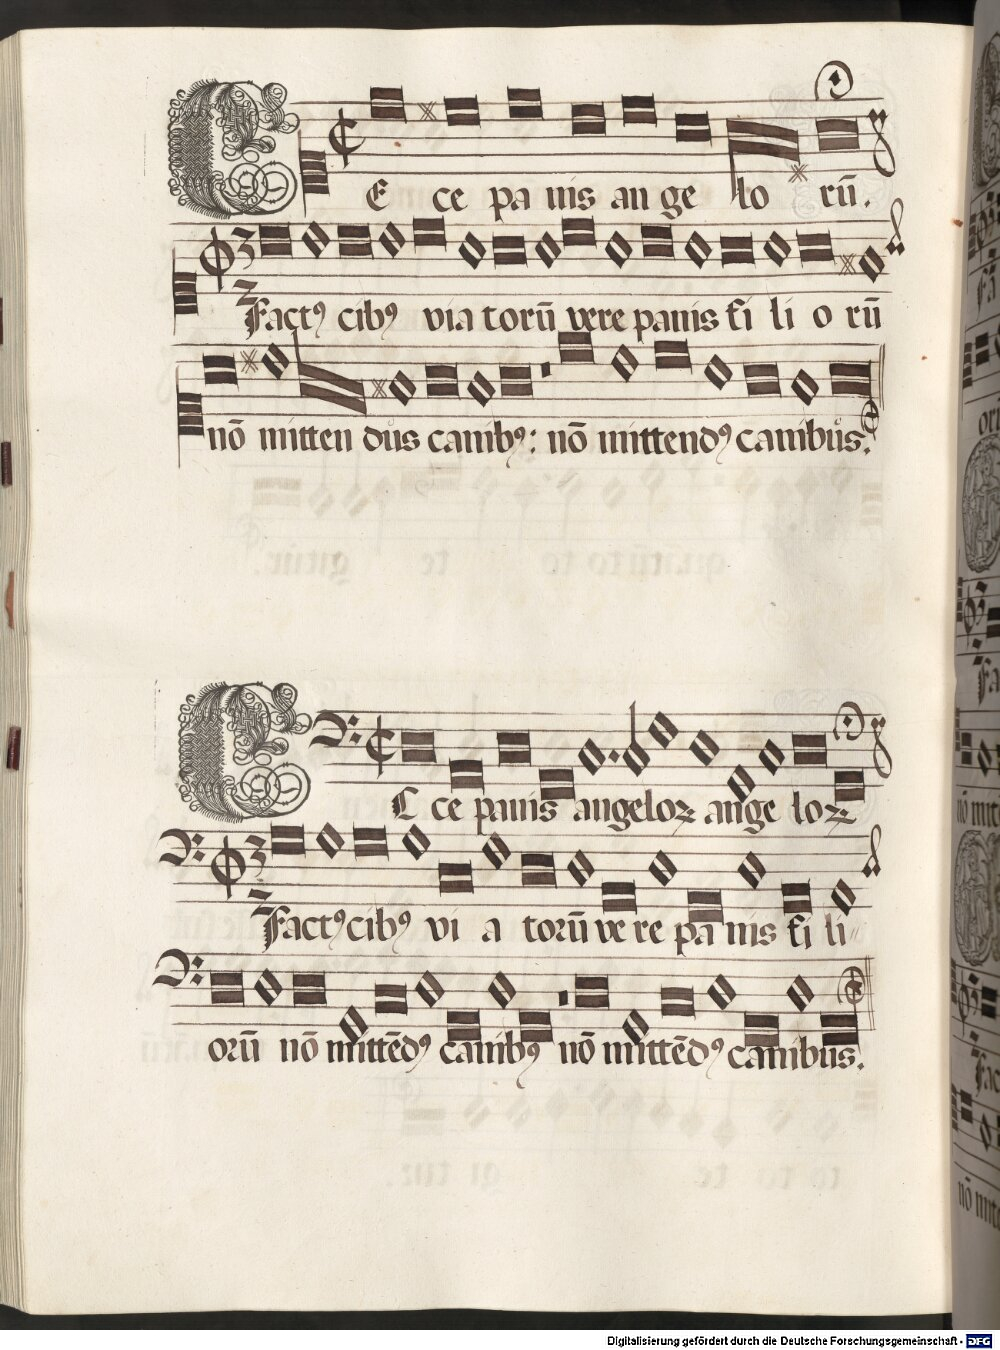 E ce pa nis an ge lo rū.
Fact⁹ cib⁹ via torū vere panis fi li o rū
nō mitten dus canib⁹: nō mittend⁹ canibus.
E ce panis angeloꝝ ange loꝝ
Fact⁹ cib⁹ vi a torū ve re pa nis fi li
orū nō mittēd⁹ canib⁹ nō mittēd⁹ canibus.
Digitalisierung gefördert durch die Deutsche Forschungsgemeinschaft - DFG